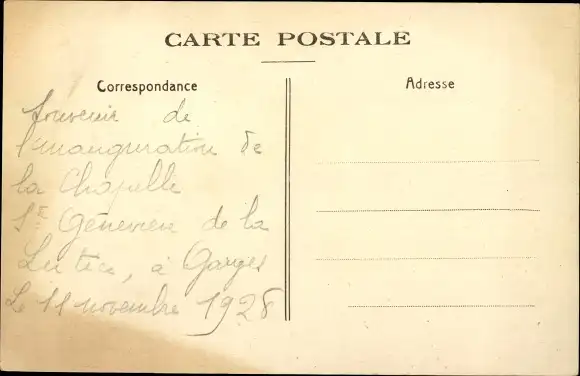 CARTE POSTALE
Correspondance
Souvenir de
l'inauguration de
la Chapelle
Ste Genevieve de la
Lutèce, à Garges
Le 11 novembre 1928
Adresse